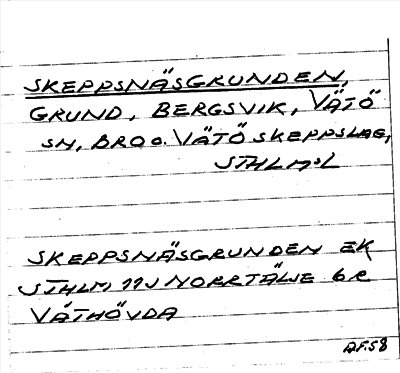 SKEPPSNÄSGRUNDEN,
GRUND, BERGSVIK, VÄTÖ
SN, BRO O. VÄTÖ SKEPPSLAG,
STHLM:L
SKEPPSNÄSGRUNDEN EK
STHLM 11J NORRTÄLJE 6R
VÄTHÖVDA
A.F.58